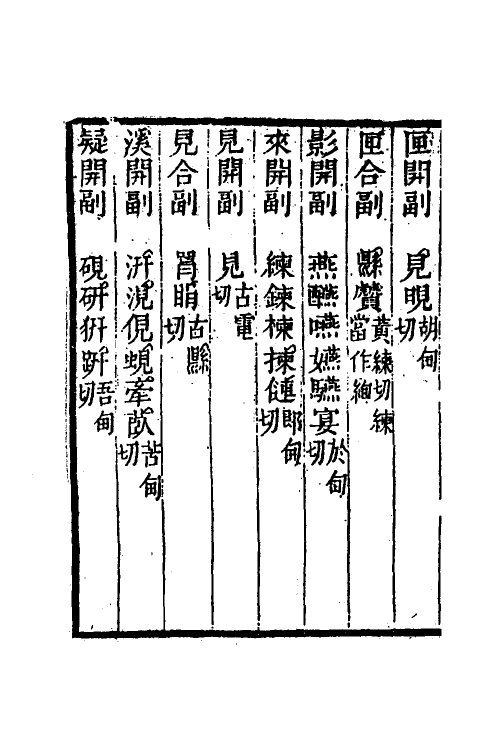 匣開副 見晛胡甸切
匣合副 縣贙黃練切練當作絢
影開副 燕醼咽嚥嬿驠宴於甸切
來開副 練鍊楝揀僆郎甸切
見開副 見古電切
見合副 睊古縣切
溪開副 汧涀俔蜆牽㰟苦甸切
疑開副 硯研豣趼吾甸切